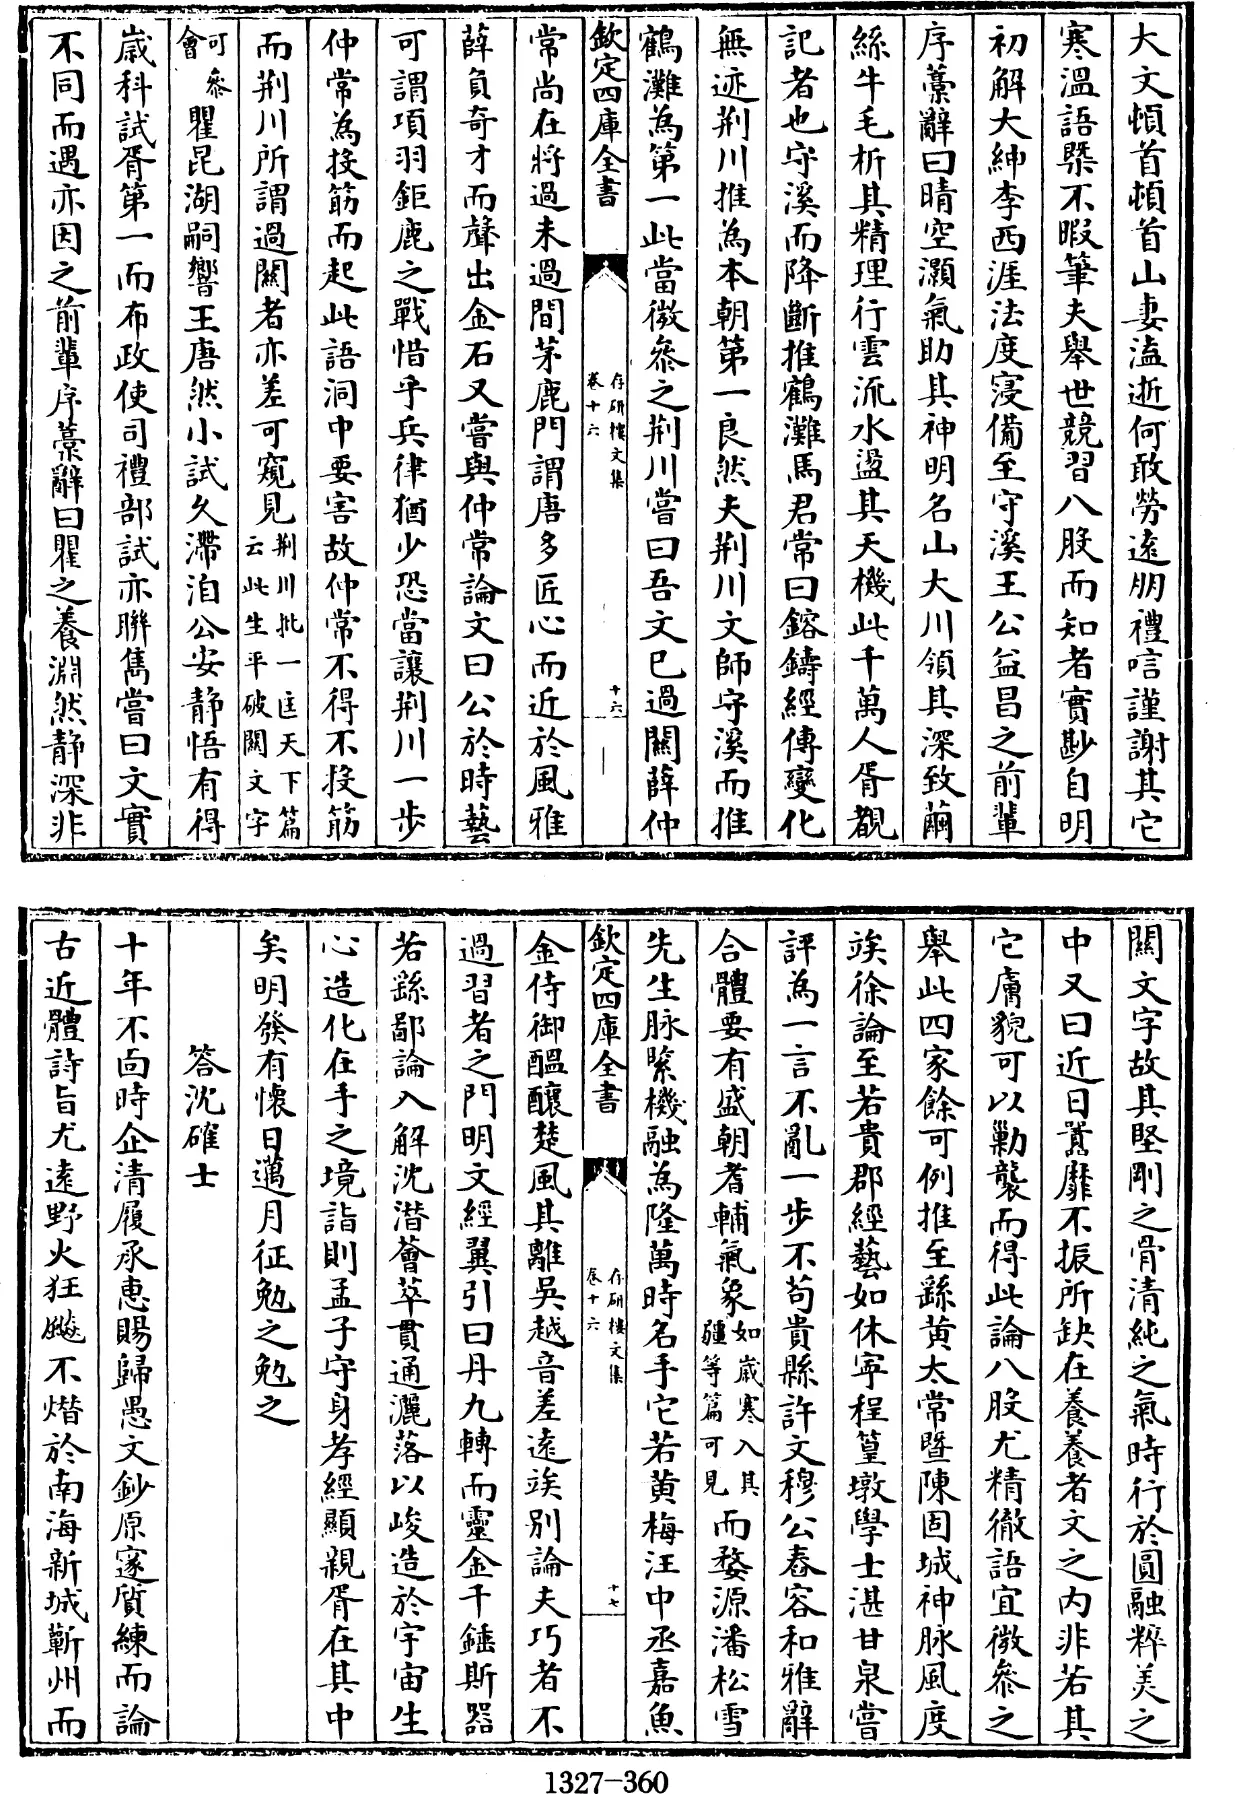 大文頓首頓首山妻溘逝何敢勞逺朋禮唁謹謝其它
寒溫語槩不暇筆夫舉世競習八股而知者實尠自明
初解大紳李西涯法度寖備至守溪王公益昌之前輩
序藁辭曰晴空灝氣助其神明名山大川領其深致繭
絲牛毛析其精理行雲流水盪其天機此千萬人胥覩
記者也守溪而降斷推鶴灘馬君常曰鎔鑄經傳變化
無迹荆川推為本朝第一良然夫荆川文師守溪而推
鶴灘為第一此當微叅之荆川嘗曰吾文已過關薛仲
欽定四庫全書
存研樓文集
卷十六
十六
常尚在將過未過間茅鹿門謂唐多匠心而近於風雅
薛負奇才而聲出金石又嘗與仲常論文曰公於時藝
可謂項羽鉅鹿之戰惜乎兵律猶少恐當讓荆川一步
仲常為投筋而起此語洞中要害故仲常不得不投筋
而荆川所謂過關者亦差可窺見荆川批一匡天下篇云此生平破關文字
可叅會瞿昆湖嗣響王唐然小試久滯洎公安靜悟有得
歲科試胥第一而布政使司禮部試亦聯雋嘗曰文實
不同而遇亦因之前輩序藁辭曰瞿之養淵然靜深非
關文字故其堅剛之骨清純之氣時行於圓融粹美之
中又曰近日萎靡不振所缺在養養者文之内非若其
它膚貌可以勦襲而得此論八股尤精徹語宜微叅之
舉此四家餘可例推至繇黄太常暨陳固城神脉風度
竢徐論至若貴郡經藝如休寧程篁墩學士湛甘泉嘗
評為一言不亂一步不苟貴縣許文穆公舂容和雅辭
合體要有盛朝耆輔氣象如嵗寒入其疆等篇可見而婺源潘松雪
先生脉縈機融為隆萬時名手它若黄梅汪中丞嘉魚
欽定四庫全書
存研樓文集
卷十六
十七
金侍御醞釀楚風其離吳越音差逺竢别論夫巧者不
過習者之門明文經翼引曰丹九轉而靈金千錘斯器
若繇鄙論入解沈潛薈萃貫通灑落以峻造於宇宙生
心造化在手之境詣則孟子守身孝經顯親胥在其中
矣明發有懷日邁月征勉之勉之
答沈確士
十年不面時企清履承惠賜歸愚文鈔原窾質練而論
古近體詩旨尤逺野火狂飈不熸於南海新城蘄州而
1327-360